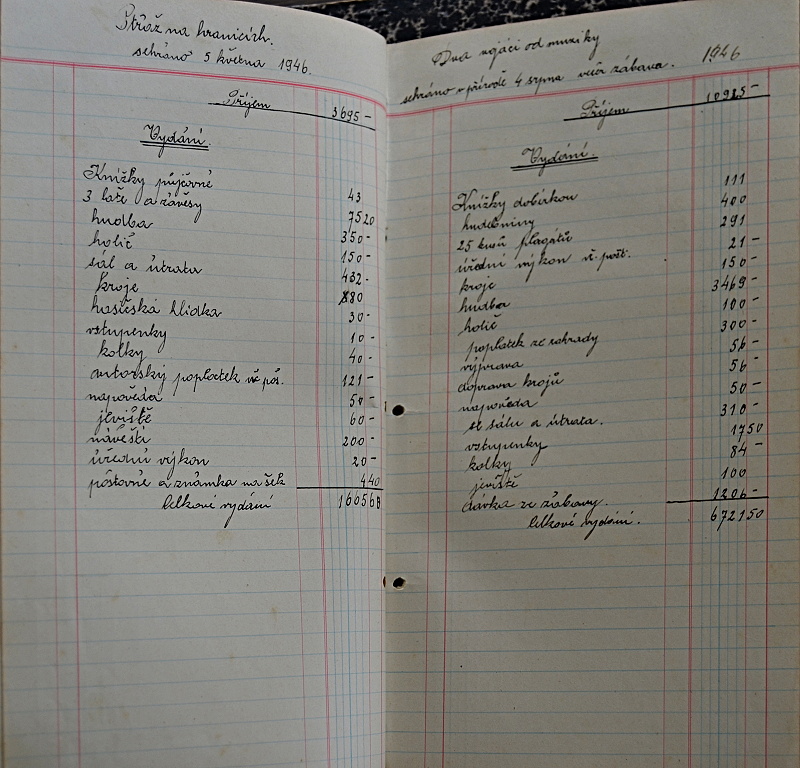 Stráž na hranicích.
sehráno 5 května 1946.
Příjem 3695-
Vydání.
Knížky půjčovné 43
3 latě a závěsy 7520
hudba 350-
holič 150-
sál a útrata 432-
kroje 80
hasičská hlídka 30-
vstupenky 10-
kolky 40-
autorský poplatek vč. poš. 121-
napověda 50-
jeviště 60-
návěští 200-
úřední výkon 20-
poštovné a známka na šek 440
Celkové vydání 160560
Dva vojáci od muziky 1946
sehráno v přírodě 4 srpna večer zábava.
Příjem 10985-
Vydání.
Knížky dobírkou 111
hudebniny 400
25 kusů plagátů 291
úřední výkon vč. pošt. 21-
kroje 150-
hudba 3469-
holič 100-
poplatek ze zahrady 300-
výprava 56-
doprava krojů 56-
napověda 50-
sál a útrata. 310-
vstupenky 1750
kolky 84-
jeviště 100
dávka ze zábavy. 1206-
Celkové vydání. 672150